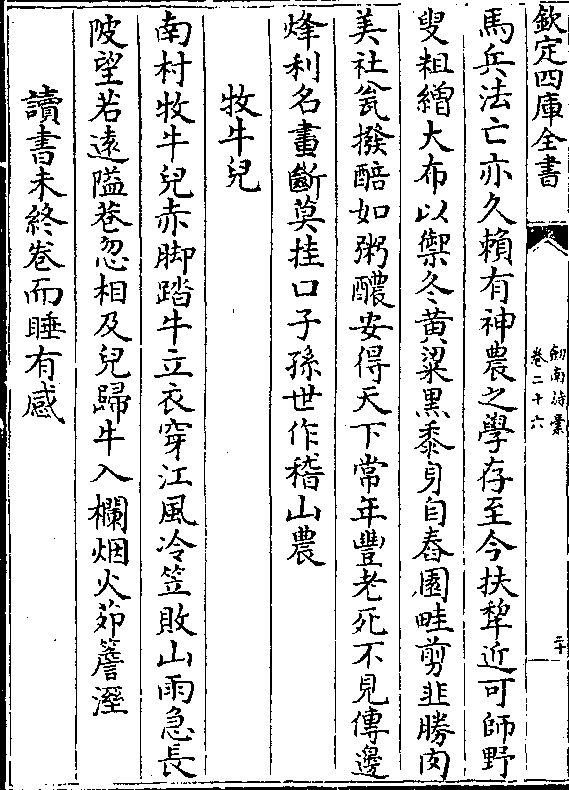 欽定四庫全書
劒南詩藁
卷二十六
二十
馬兵法亡亦久賴有神農之學存至今扶犂近可師野
叟粗繒大布以禦冬黃粱黑黍身自舂園畦剪韭勝肉
美社瓮撥醅如粥醲安得天下常年豐老死不見傳邊
烽利名畫斷莫挂口子孫世作稽山農
牧牛兒
南村牧牛兒赤脚踏牛立衣穿江風冷笠敗山雨急長
陂望若遠隘巷忽相及兒歸牛入欄烟火茆簷溼
讀書未終卷而睡有感